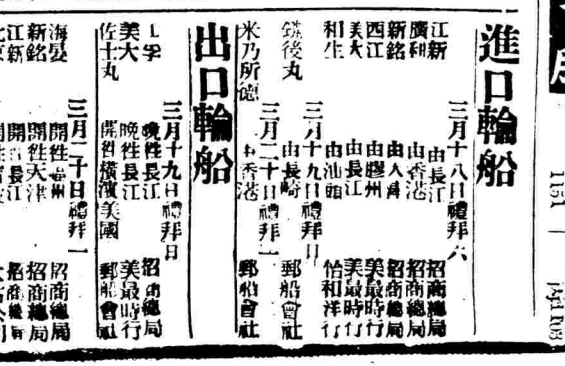 進口輪船
三月十八日禮拜六
江新 由長江 招商總局
廣利 由香港 招商總局
新銘 由天津 招商總局
西江 由膠州 美最時行
美大 由長江 美最時行
和生 由汕頭 怡和洋行
三月十九日禮拜日
後丸 由長崎 郵船會社
三月二十日禮拜一
米乃所德 由香港 郵船會社
出口輪船
三月十九日禮拜日
孚 晚往長江 招商總局
美大 晚往長江 美最時行
佐士丸 開往橫濱美國 郵船會社
三月二十日禮拜一
海晏 開往 州 招商總局
新銘 開往天津 招商總局
江新 開往長江 招商總局